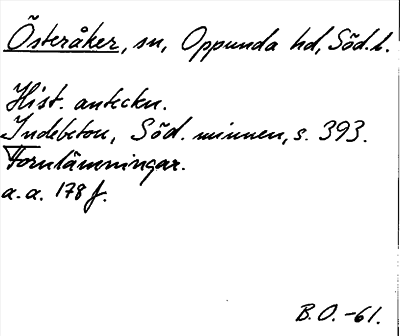 Österåker, sn, Oppunda hd, Söd. l.
Hist. anteckn.
Indebetou, Söd. minnen, s. 393.
Fornlämningar.
a.a. 178 f.
B.O. -61.